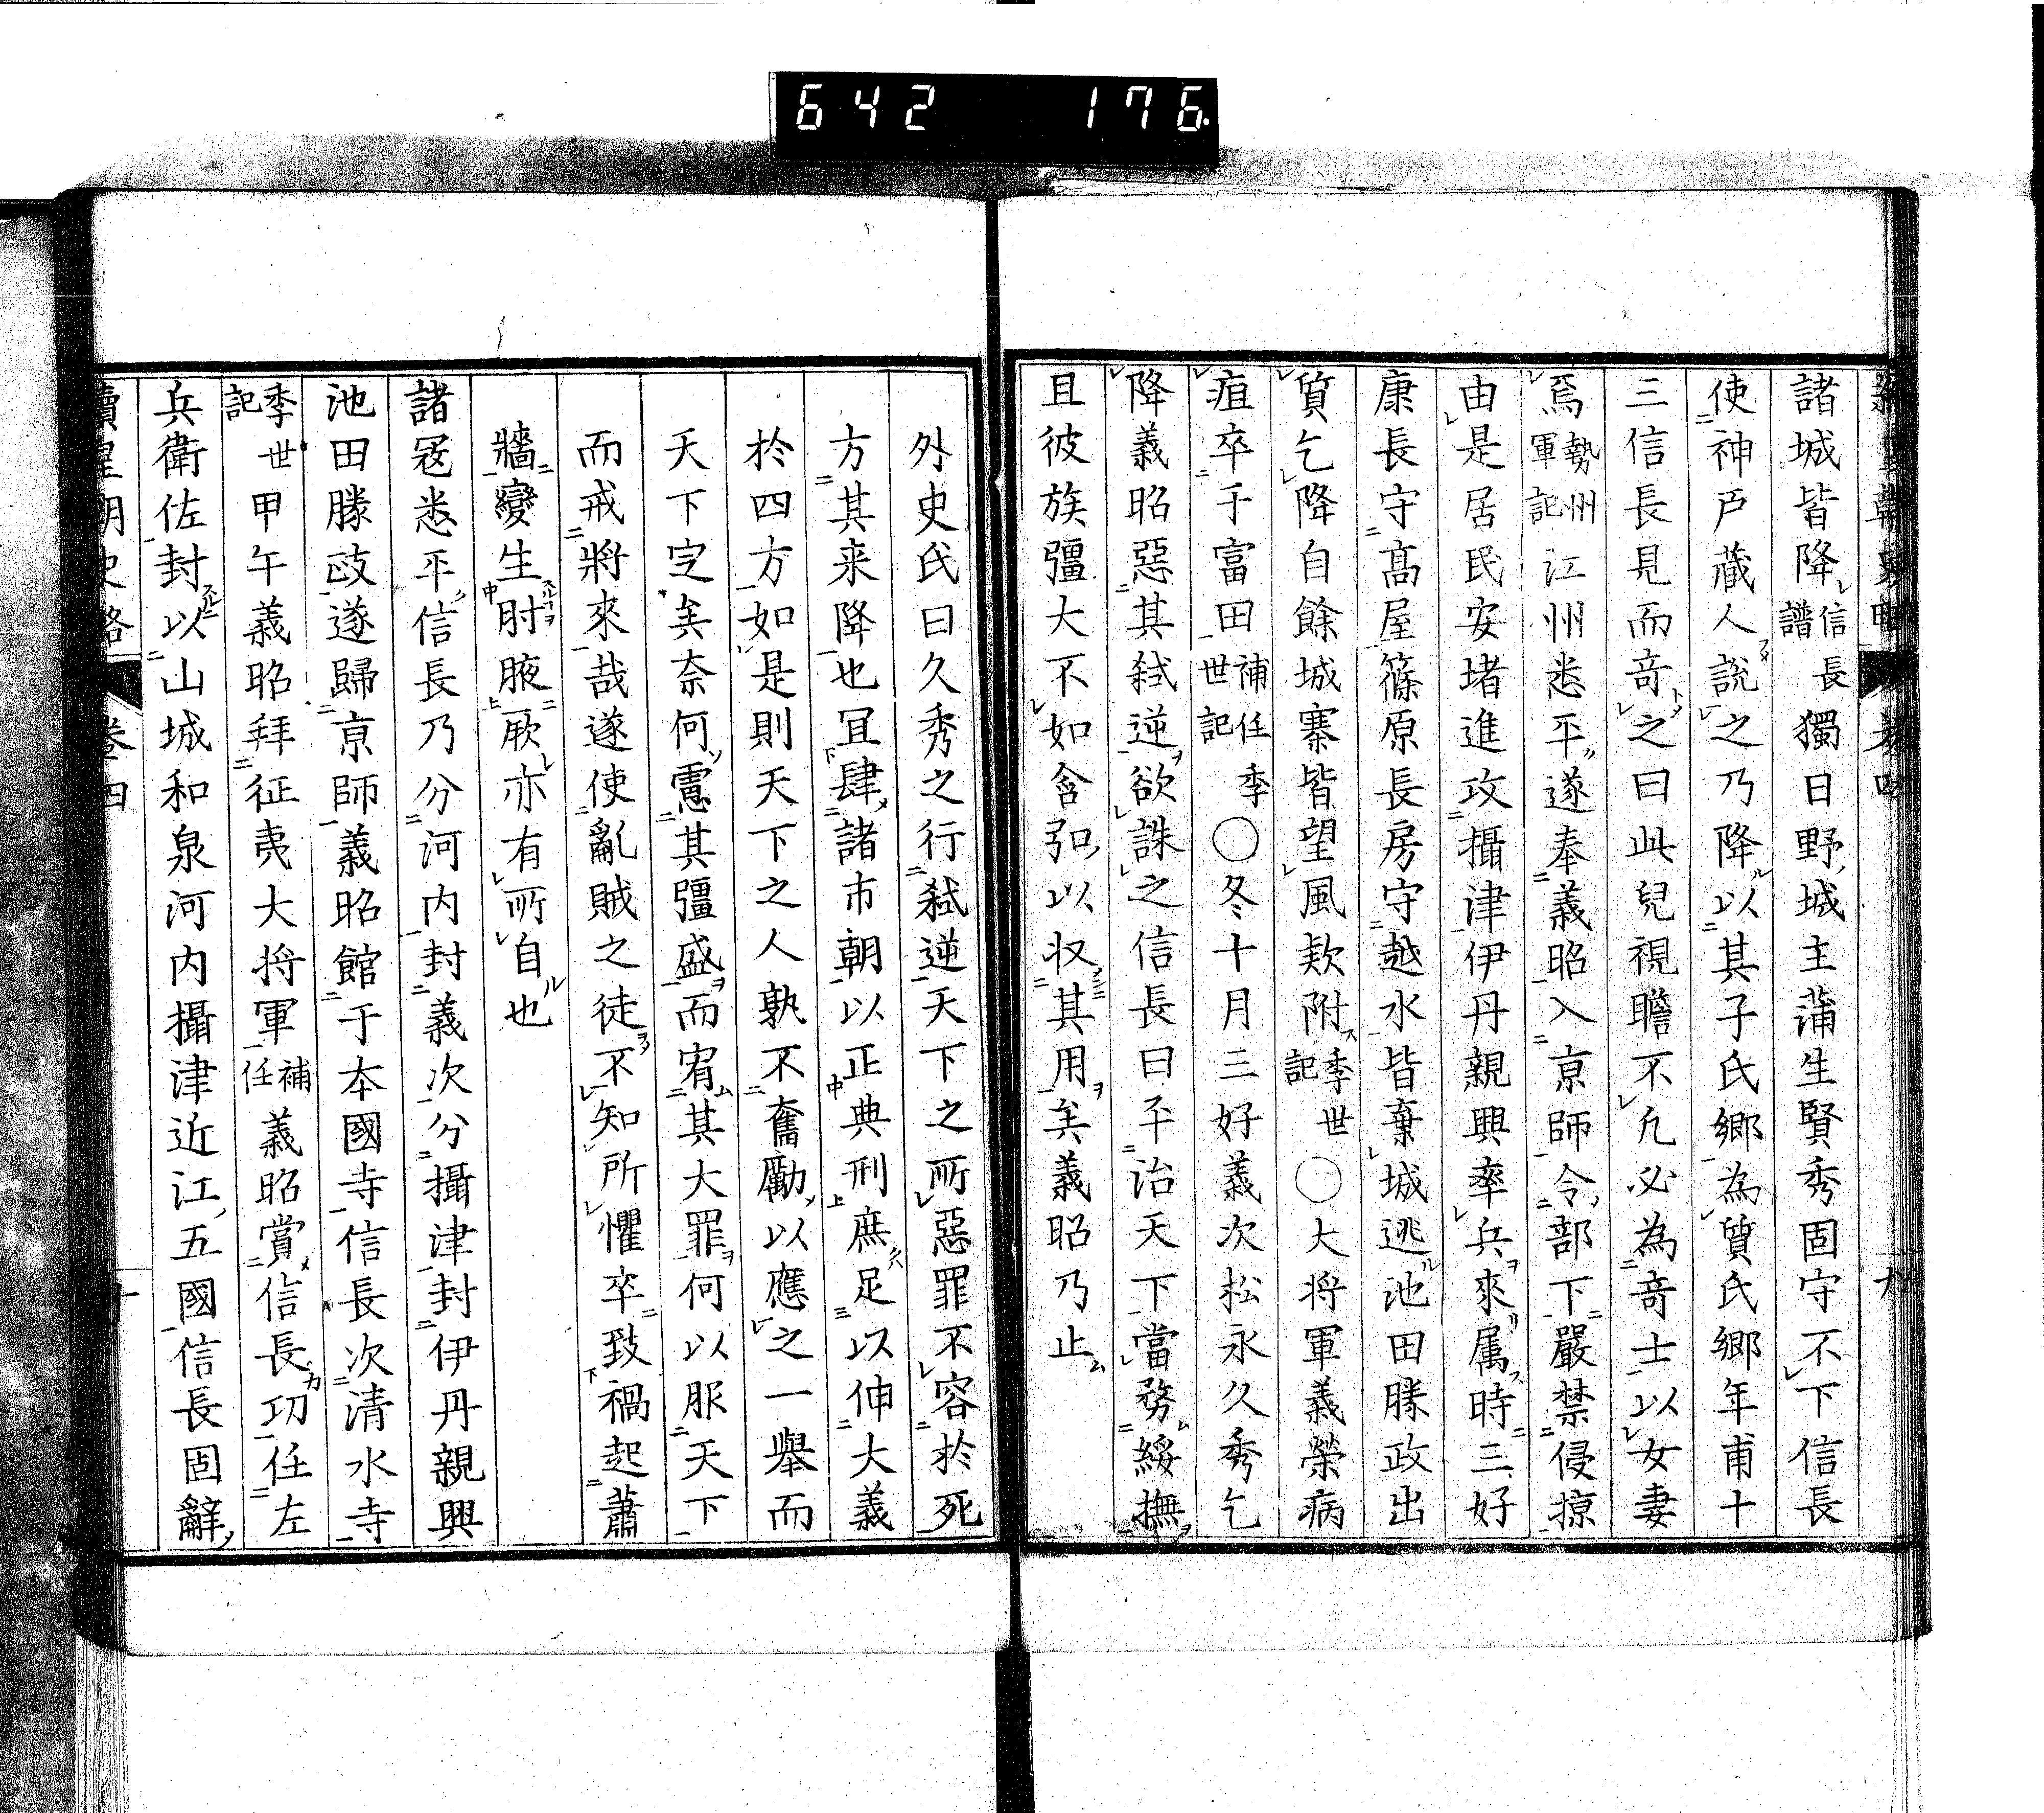 642 176
諸城皆降信長譜獨日野城主蒲生賢秀固守不下信長
使神戸藏人說之乃降以其子氏郷為質氏郷年甫十
三信長見而竒之曰此兒視瞻不凡必為竒士以女妻
焉勢州軍記江州悉平遂奉義昭入京師令部下嚴禁侵掠
由是居民安堵進攻攝津伊丹親興率兵來属時三好
康長守髙屋篠原長房守越水皆棄城逃池田勝政出
質乞降自餘城寨皆望風欵附季世記〇大将軍義榮病
疽卒于富田補任季世記〇冬十月三好義次松永久秀乞
降義昭惡其弑逆欲誅之信長曰平治天下當務綏撫
且彼族彊大不如含弘以収其用矣義昭乃止
外史氏曰久秀之行弑逆天下之所惡罪不容於死
方其来降也宜肆諸市朝以正典刑庶足以伸大義
於四方如是則天下之人孰不奮勵以應之一舉而
天下定矣奈何憲其彊盛而宥其大罪何以服天下
而戒將來哉遂使亂賊之徒不知所懼卒致禍起蕭
牆變生肘腋厥亦有所自也
諸冦悉平信長乃分河内封義次分攝津封伊丹親興
池田勝政遂歸京師義昭館于本國寺信長次清水寺
季世記甲午義昭拜征夷大将軍補任義昭賞信長功任左
兵衛佐封以山城和泉河内攝津近江五國信長固辭
續皇朝史略 卷四